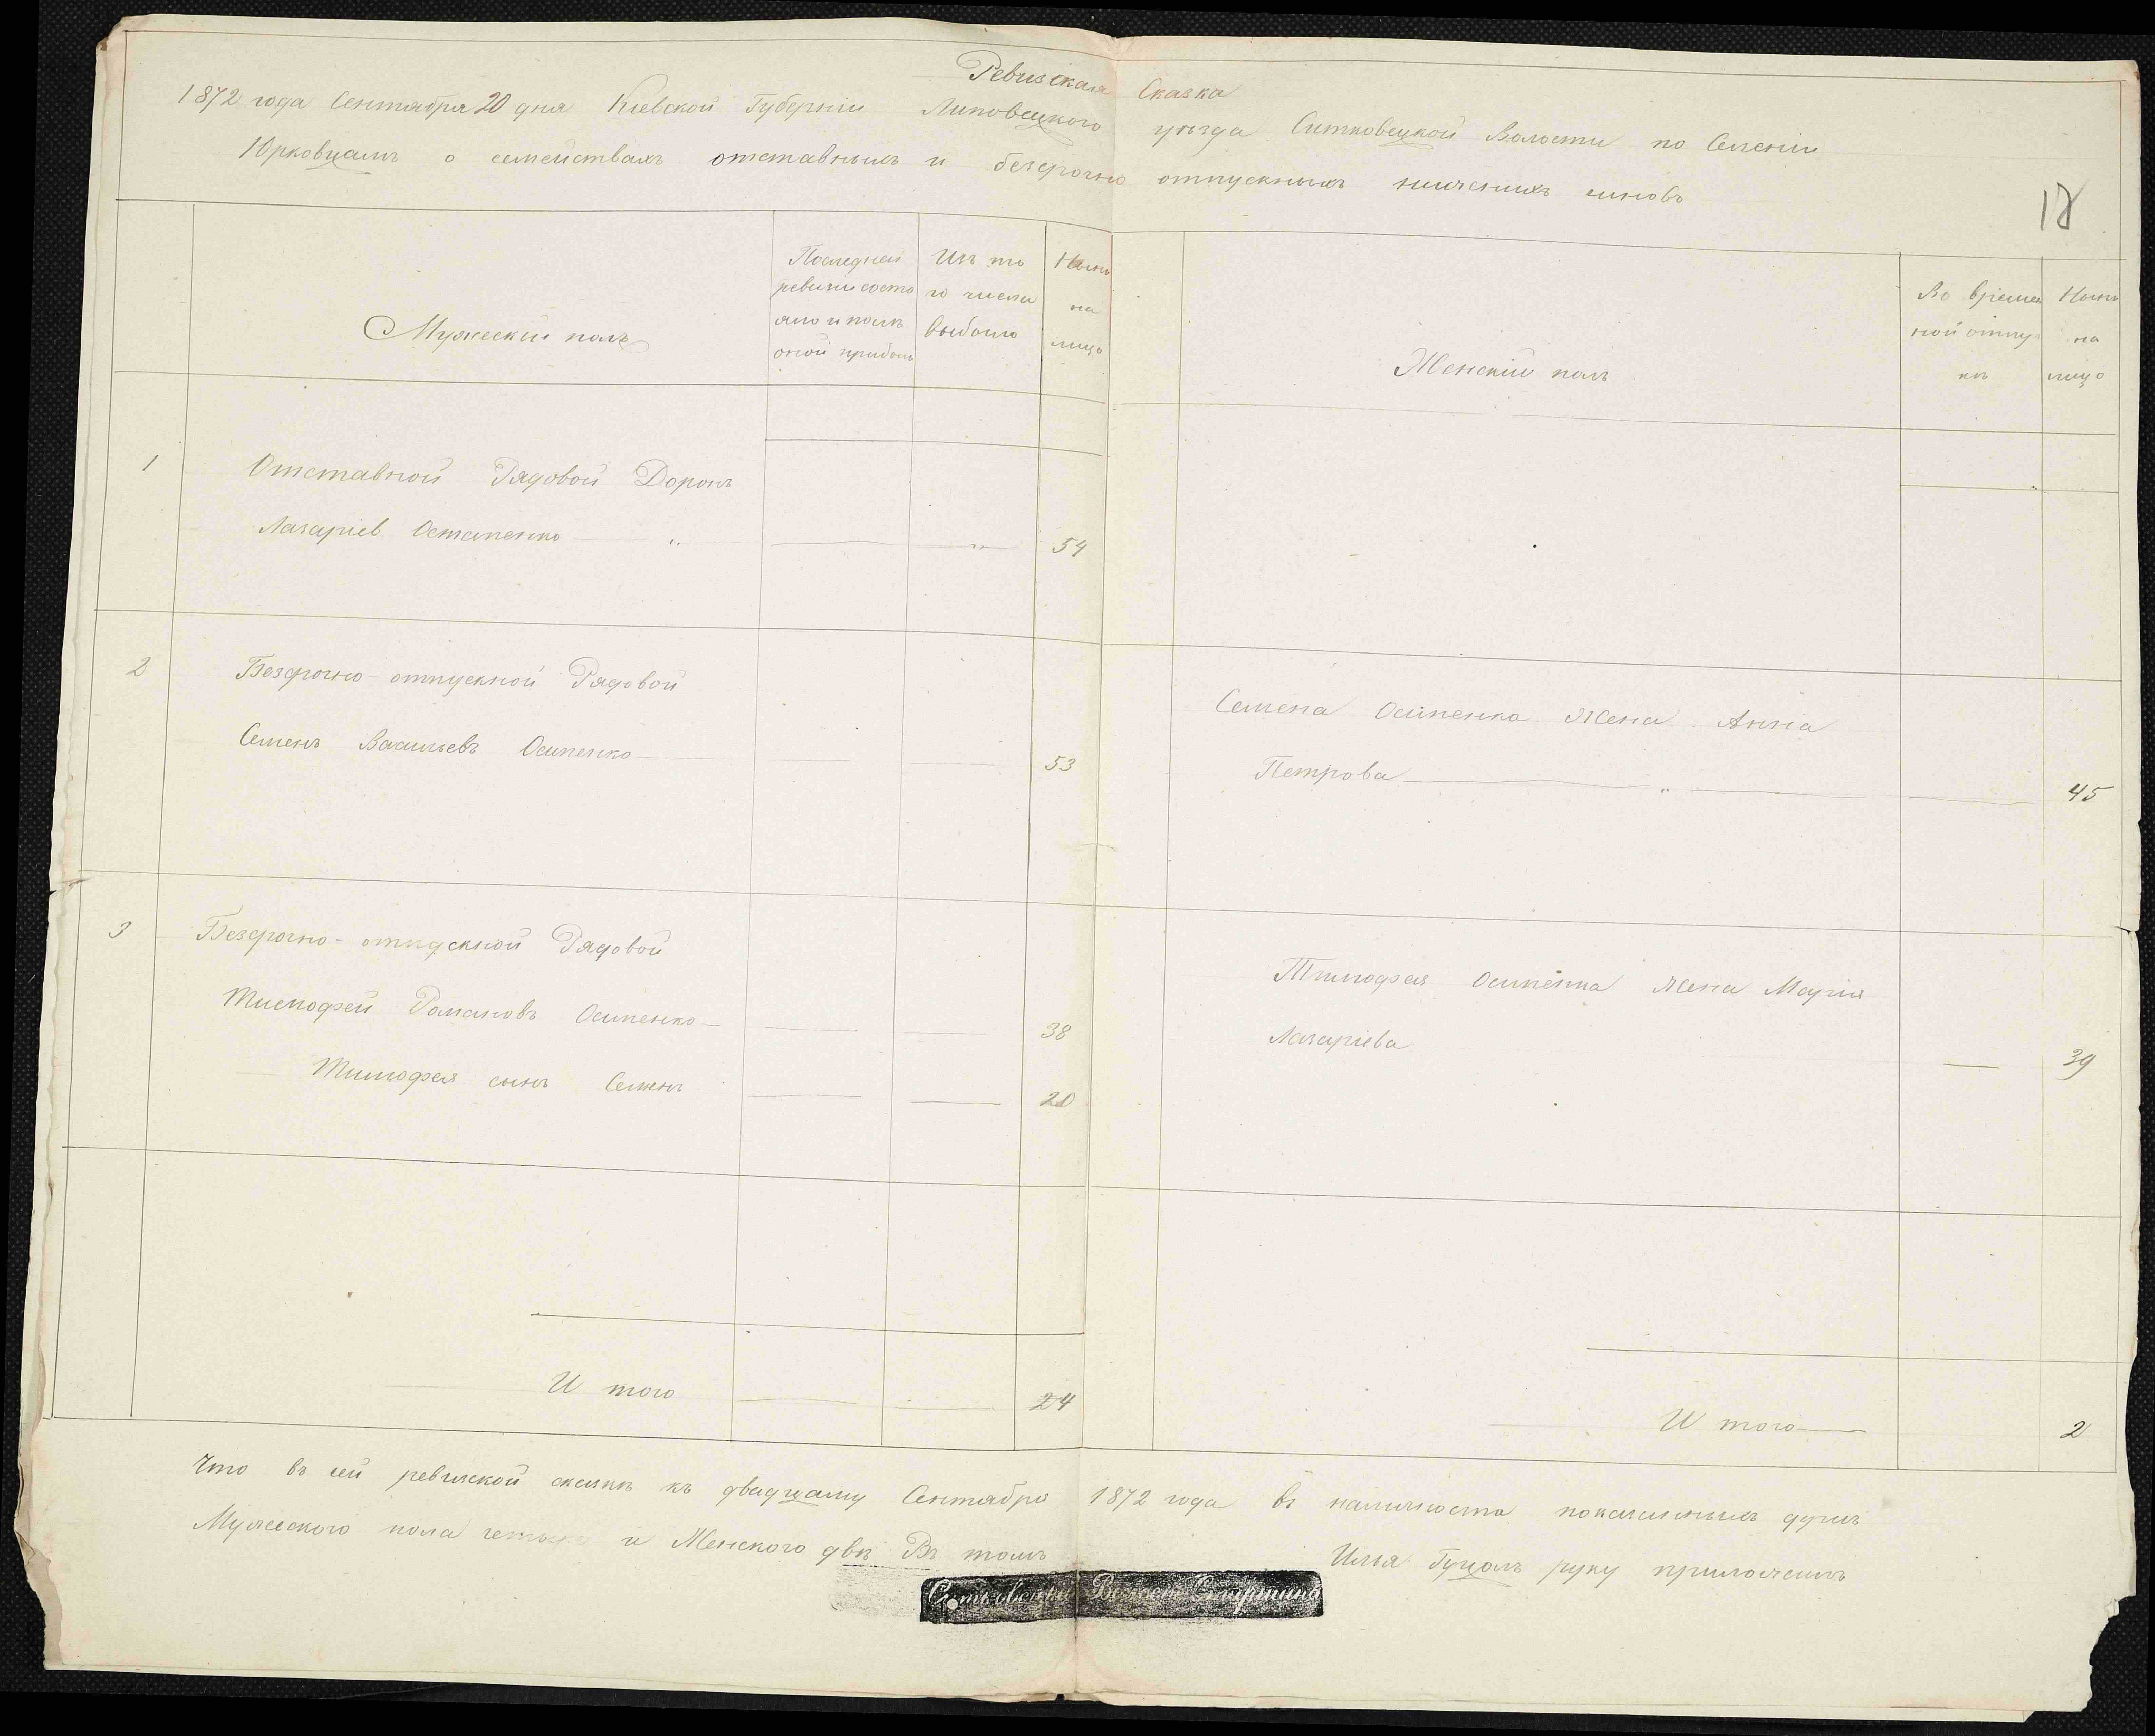 Ревизская Сказка
1872 года Сентября 20 дня Кіевской Губерніи Липовецкого уезда Ситковецкой Волости по Селенію
Юрковцамъ о семействахъ отставныхъ и безсрочно отпускныхъ нижнихъ чиновъ
18
Мужеский полъ
Последней
ревизии состо
яло и после
оной прибыло
Изъ то
го числа
выбыло
Ныне
на
лицо
Женский полъ
Во време
ной отлу
ке
Ныне
на
лицо
1 Отставной Рядовой Доронъ
Лазаріев Остапенко 54
2 Безсрочно-отпускной Рядовой
Семенъ Васильевъ Осипенко 53
Семена Осипенка Жена Анна
Петрова 45
3 Безсрочно-отпускной Рядовой
Тимофей Романовъ Осипенко 38
Тимофея сынъ Семенъ 20
Тимофея Осипенка жена Марія
Лазаріева 39
И того 4
И того 2
Что въ сей ревизской сказке къ двадцатому Сентября 1872 года въ наличности показанныхъ душъ
Мужеского пола четыре и Женского две Въ томъ
Илья Гуцалъ руку приложилъ
Ситковецкій Волосной Старшина